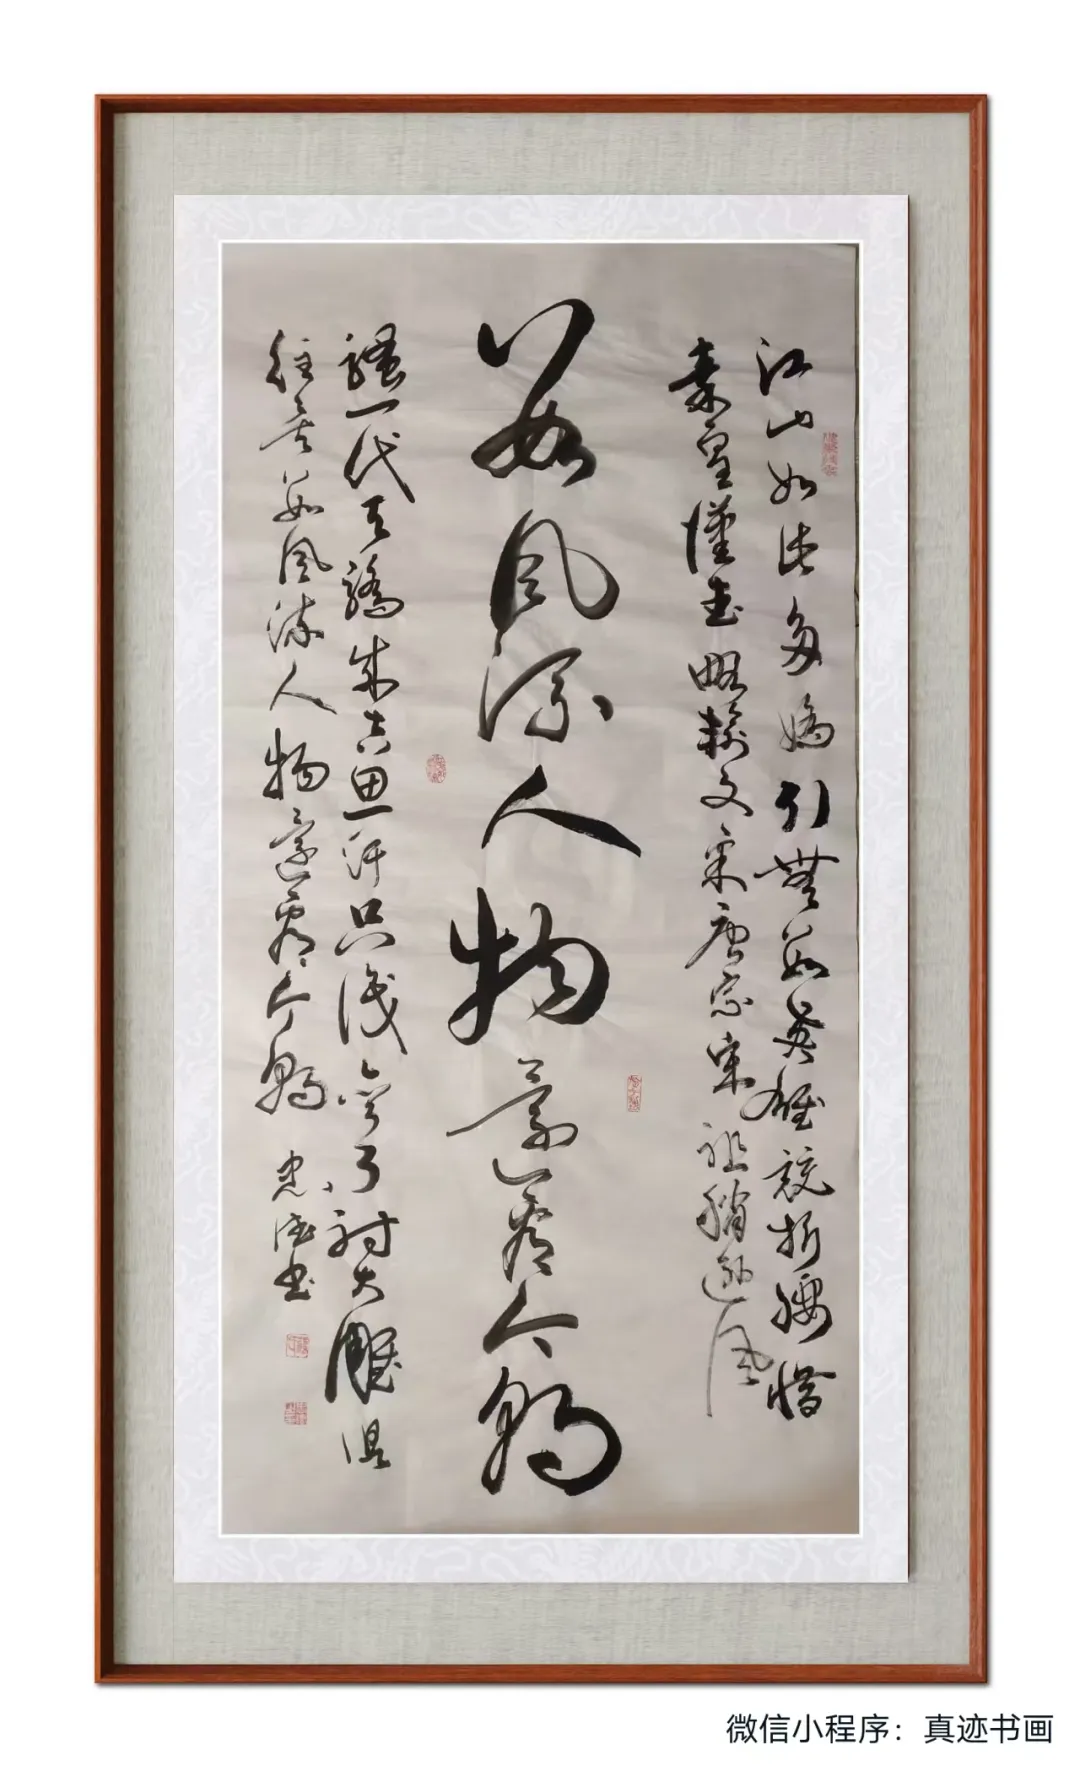 江山如此多娇引无数英雄竞折腰惜
秦皇汉武略输文采唐宗宋祖稍逊风
数风流人物还看今朝
骚一代天骄成吉思汗只识弯弓射大雕俱
往矣数风流人物还看今朝 忠
书
微信小程序：真迹书画